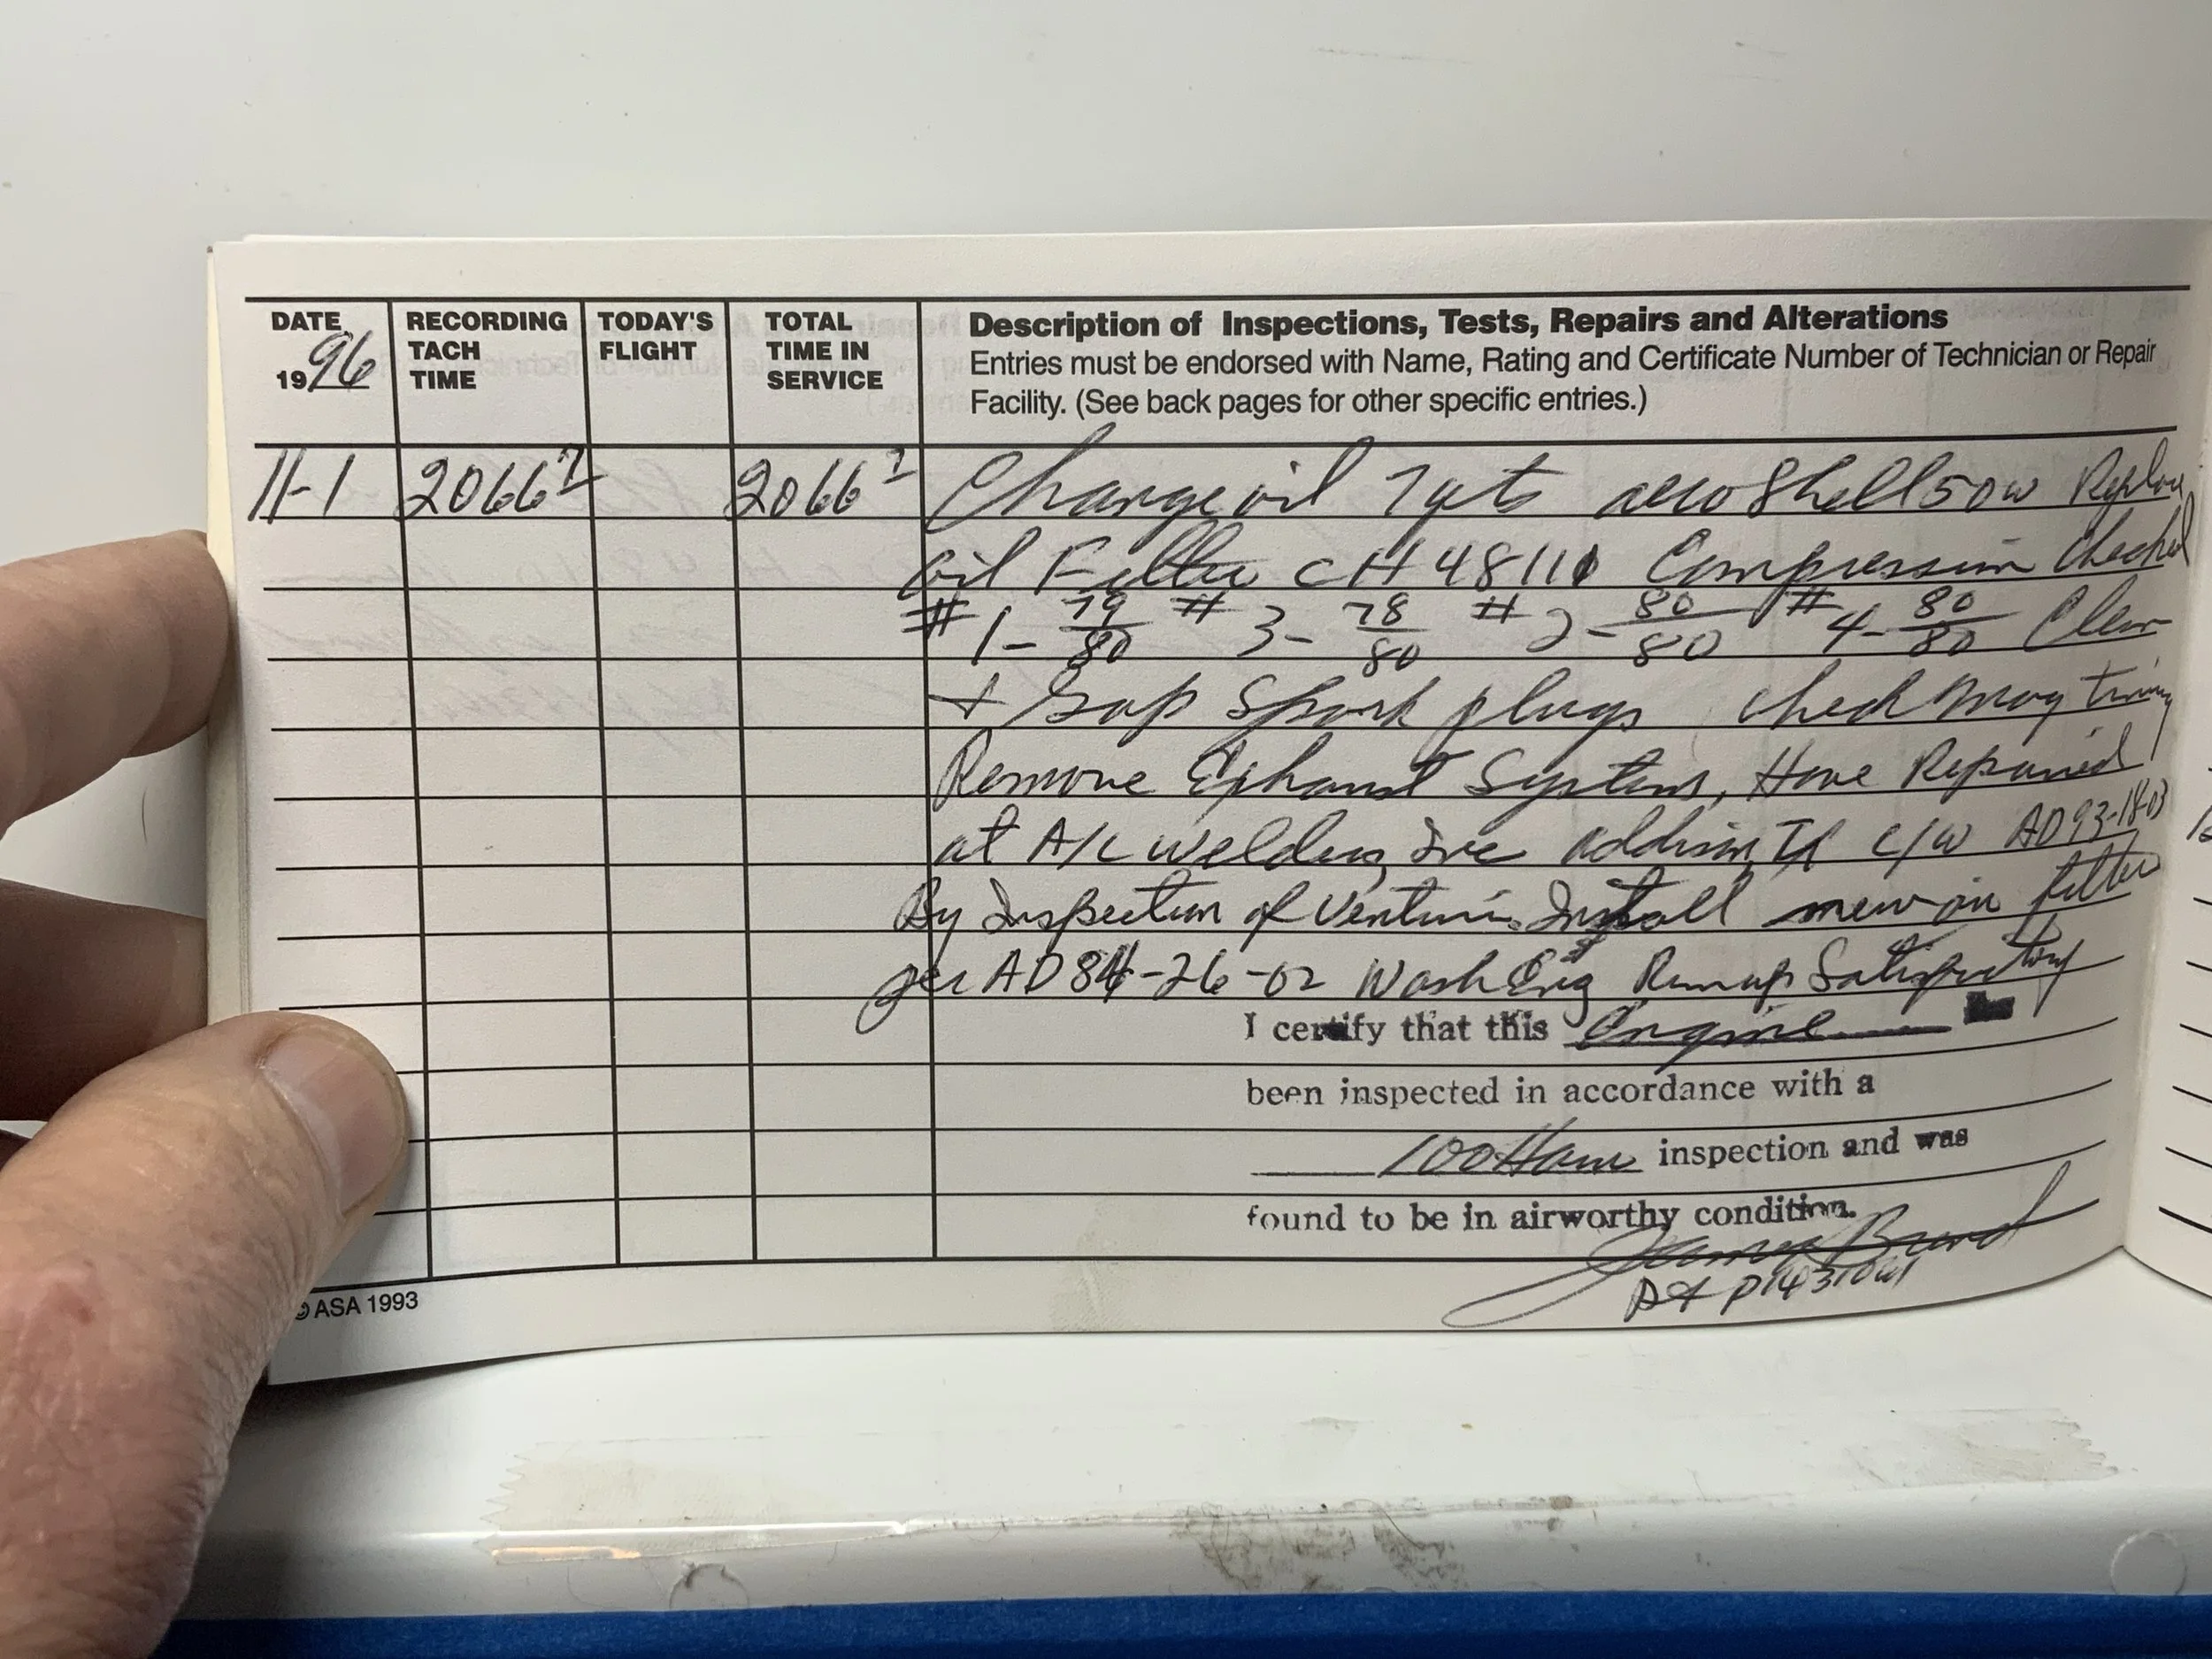 DATE RECORDING TODAY'S TOTAL Description of Inspections, Tests, Repairs and Alterations
TACH FLIGHT TIME IN Entries must be endorsed with Name, Rating and Certificate Number of Technician or Repair
1996 TIME SERVICE Facility. (See back pages for other specific entries.)
11-1 2066 2066 Change oil 7 qts aeroshell 50w Replace
oil Filter CH48110 Compression Checked
#1-79/80 #3-78/80 #2-80/80 #4-80/80 Clean
+ Gap Spark plugs check mag timing
Remove Exhaust System, Have Repaired
at A/C Welding, Inc Addison, TX c/w AD93-18-03
By Inspection of Venturi. Install new air filter
per AD84-26-02 Wash Eng Runup Satisfactory
I certify that this Engine
been inspected in accordance with a
100 Hour inspection and was
found to be in airworthy condition.
James
© ASA 1993